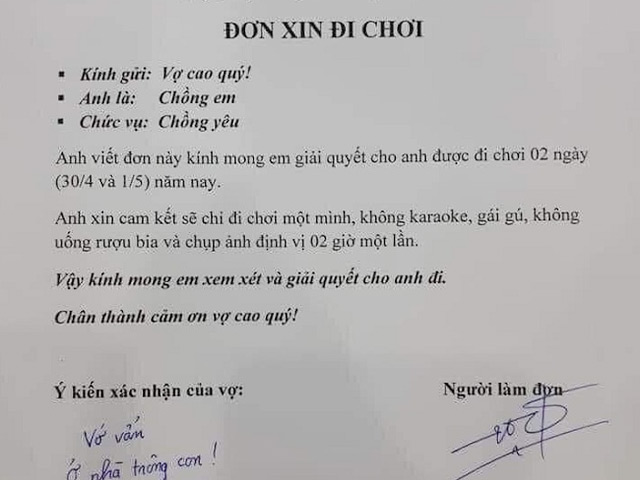 ĐƠN XIN ĐI CHƠI
▪ Kính gửi: Vợ cao quý!
▪ Anh là: Chồng em
▪ Chức vụ: Chồng yêu
Anh viết đơn này kính mong em giải quyết cho anh được đi chơi 02 ngày
(30/4 và 1/5) năm nay.
Anh xin cam kết sẽ chỉ đi chơi một mình, không karaoke, gái gú, không
uống rượu bia và chụp ảnh định vị 02 giờ một lần.
Vậy kính mong em xem xét và giải quyết cho anh đi.
Chân thành cảm ơn vợ cao quý!
Ý kiến xác nhận của vợ:
Người làm đơn
Vớ vẩn
Ở nhà trông con!